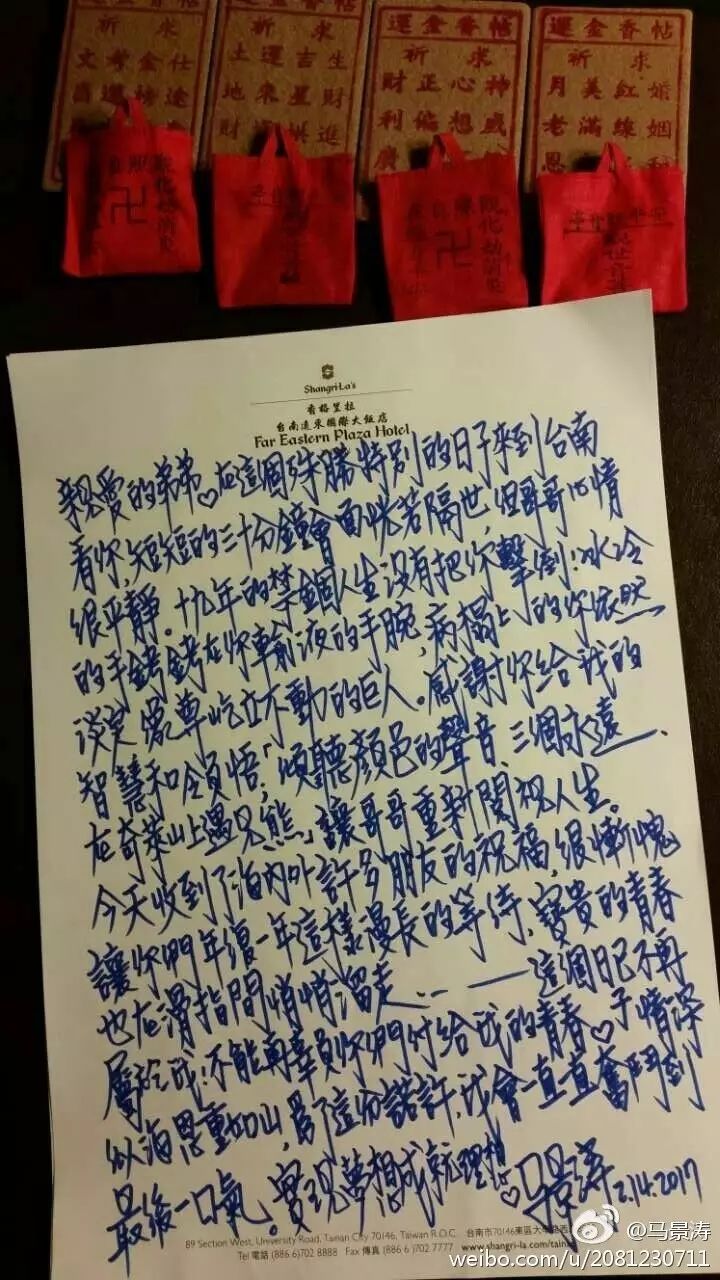 運金香帖
祈求
文考金仕
昌運榜途
運金香帖
祈求
土運吉生
地來星財
財運拱進
運金香帖
祈求
財正心神
利偏想盛
廣
運金香帖
祈求
月美紅婚
老滿線姻
恩
卍
卍
Shangri-La's
香格里拉
台南遠東國際大飯店
Far Eastern Plaza Hotel
親愛的弟弟♡在這個殊勝特別的日子來到台南
看你,短短的三十分鐘會面恍若隔世,但哥哥心情
很平靜。十九年的禁錮人生沒有把你擊倒!冰冷
的手銬銬在你輸液的手腕,病榻上的你依然
淡定 屹立不動的巨人。感謝你給我的
智慧和領悟!「傾聽顏色的聲音、三個永遠、
在奇萊山上遇見熊」讓哥哥重新開視人生。
今天收到了海內外許多朋友的祝福,很慚愧
讓你們年復一年這樣漫長的等待,寶貴的青春
也在滑指間悄悄溜走...——這個日已不再
屬於我!不能再辜負你們付給我的青春♡于情深
似海恩重如山,為了這份諾許,我會一直一直奮鬥到
最後一口氣。實現夢想成就理想♡馬景涛 2.14.2017
89 Section West, University Road, Tainan City 70146, Taiwan R.O.C. 台南市70146東區大學路西
Tel 電話 (886 6)702 8888 Fax 傳真 (886 6)702 7777 www.shangri-la.com/tainan
@马景涛
weibo.com/u/2081230711